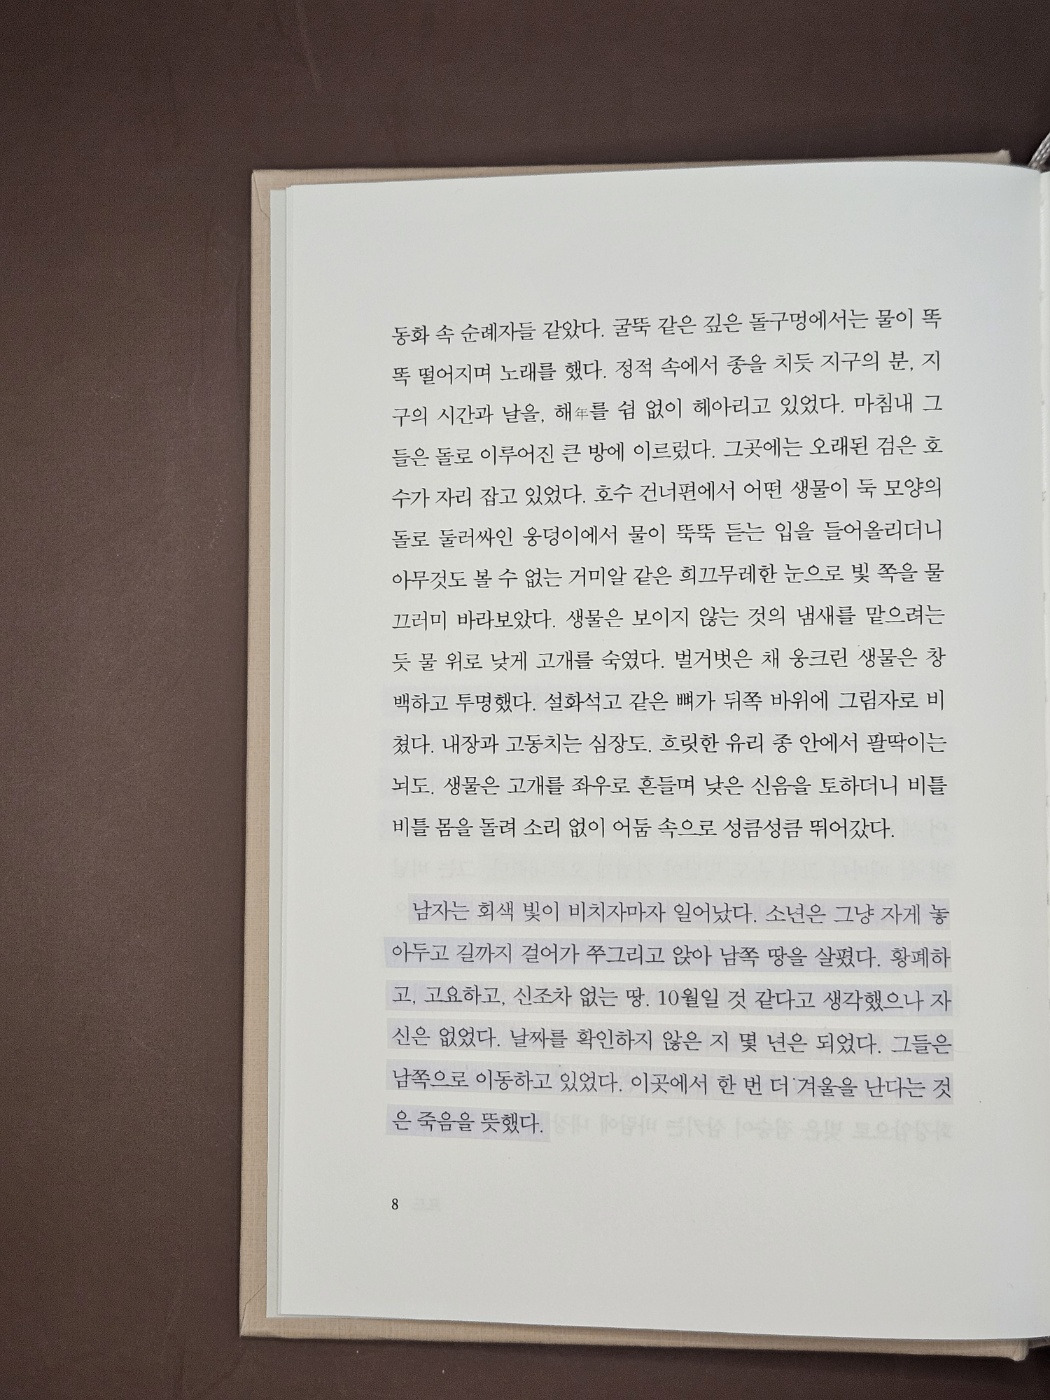 동화 속 순례자들 같았다. 굴뚝 같은 깊은 돌구멍에서는 물이 똑
똑 떨어지며 노래를 했다. 정적 속에서 종을 치듯 지구의 분, 지
구의 시간과 날을, 해年를 쉼 없이 헤아리고 있었다. 마침내 그
들은 돌로 이루어진 큰 방에 이르렀다. 그곳에는 오래된 검은 호
수가 자리 잡고 있었다. 호수 건너편에서 어떤 생물이 둑 모양의
돌로 둘러싸인 웅덩이에서 물이 뚝뚝 듣는 입을 들어올리더니
아무것도 볼 수 없는 거미알 같은 희끄무레한 눈으로 빛 쪽을 물
끄러미 바라보았다. 생물은 보이지 않는 것의 냄새를 맡으려는
듯 물 위로 낮게 고개를 숙였다. 벌거벗은 채 웅크린 생물은 창
백하고 투명했다. 설화석고 같은 뼈가 뒤쪽 바위에 그림자로 비
쳤다. 내장과 고동치는 심장도. 흐릿한 유리 종 안에서 팔딱이는
뇌도. 생물은 고개를 좌우로 흔들며 낮은 신음을 토하더니 비틀
비틀 몸을 돌려 소리 없이 어둠 속으로 성큼성큼 뛰어갔다.
남자는 회색 빛이 비치자마자 일어났다. 소년은 그냥 자게 놓
아두고 길까지 걸어가 쭈그리고 앉아 남쪽 땅을 살폈다. 황폐하
고, 고요하고, 신조차 없는 땅. 10월일 것 같다고 생각했으나 자
신은 없었다. 날짜를 확인하지 않은 지 몇 년은 되었다. 그들은
남쪽으로 이동하고 있었다. 이곳에서 한 번 더 겨울을 난다는 것
은 죽음을 뜻했다.
8